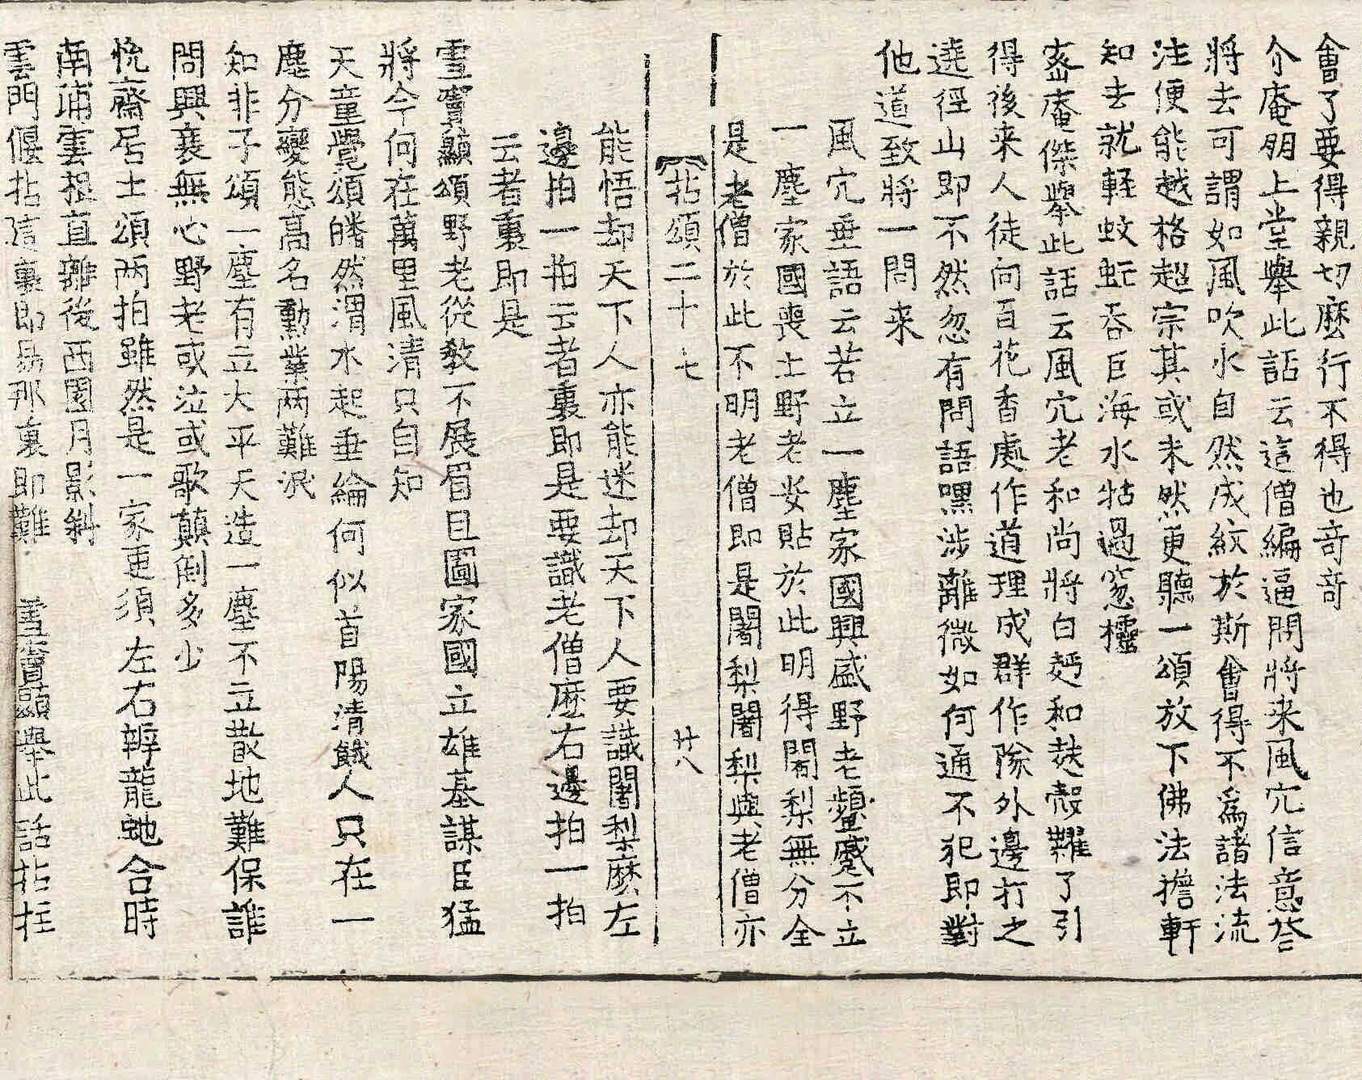 會了要得親切麽行不得也奇奇
介庵朋上堂舉此話云這僧編逼問將来風穴信意荅
將去可謂如風吹水自然成紋於斯會得不爲諸法流
注便能越格超宗其或未然更聽一頌放下佛法擔軒
知去就輕蚊䖟吞巨海水牯過窓櫺
密庵傑舉此話云風穴老和尚將白麪和麩殼糶了引
得後来人徒向百花香處作道理成群作隊外邊打之
遶徑山即不然忽有問語嘿涉離微如何通不犯即對
他道致將一問来
風穴垂語云若立一塵家國興盛野老顰蹙不立
一塵家國喪亡野老安貼於此明得闍梨無分全
是老僧於此不明老僧即是闍梨闍梨與老僧亦
拈頌二十七 廿八
能悟却天下人亦能迷却天下人要識闍梨麽左
邊拍一拍云者裏即是要識老僧麽右邊拍一拍
云者裏即是
雪竇顯頌野老從教不展眉且圖家國立雄基謀臣猛
將今何在萬里風清只自知
天童覺頌皤然渭水起垂綸何似首陽清餓人只在一
塵分變態高名勳業两難泯
知非子頌一塵有立大平天造一塵不立散地難保誰
問興衰無心野老或泣或歌顛倒多少
恱齋居士頌两拍雖然是一家更須左右辨龍虵合時
南浦雲根直離後西園月影斜
雲門偃拈這裏即易那裏即難 雪竇顯舉此話拈拄